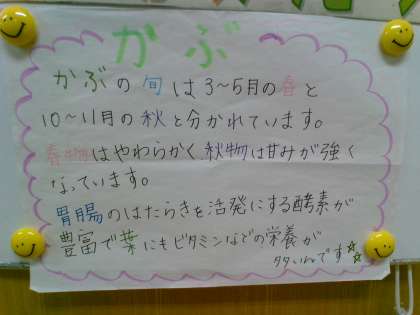 かぶ
かぶの旬は3~5月の春と
10~11月の秋と分かれています。
春物はやわらかく、秋物は甘みが強く
なっています。
胃腸のはたらきを活発にする酵素が
豊富で葉にもビタミンなどの栄養が
多いんです☆☆